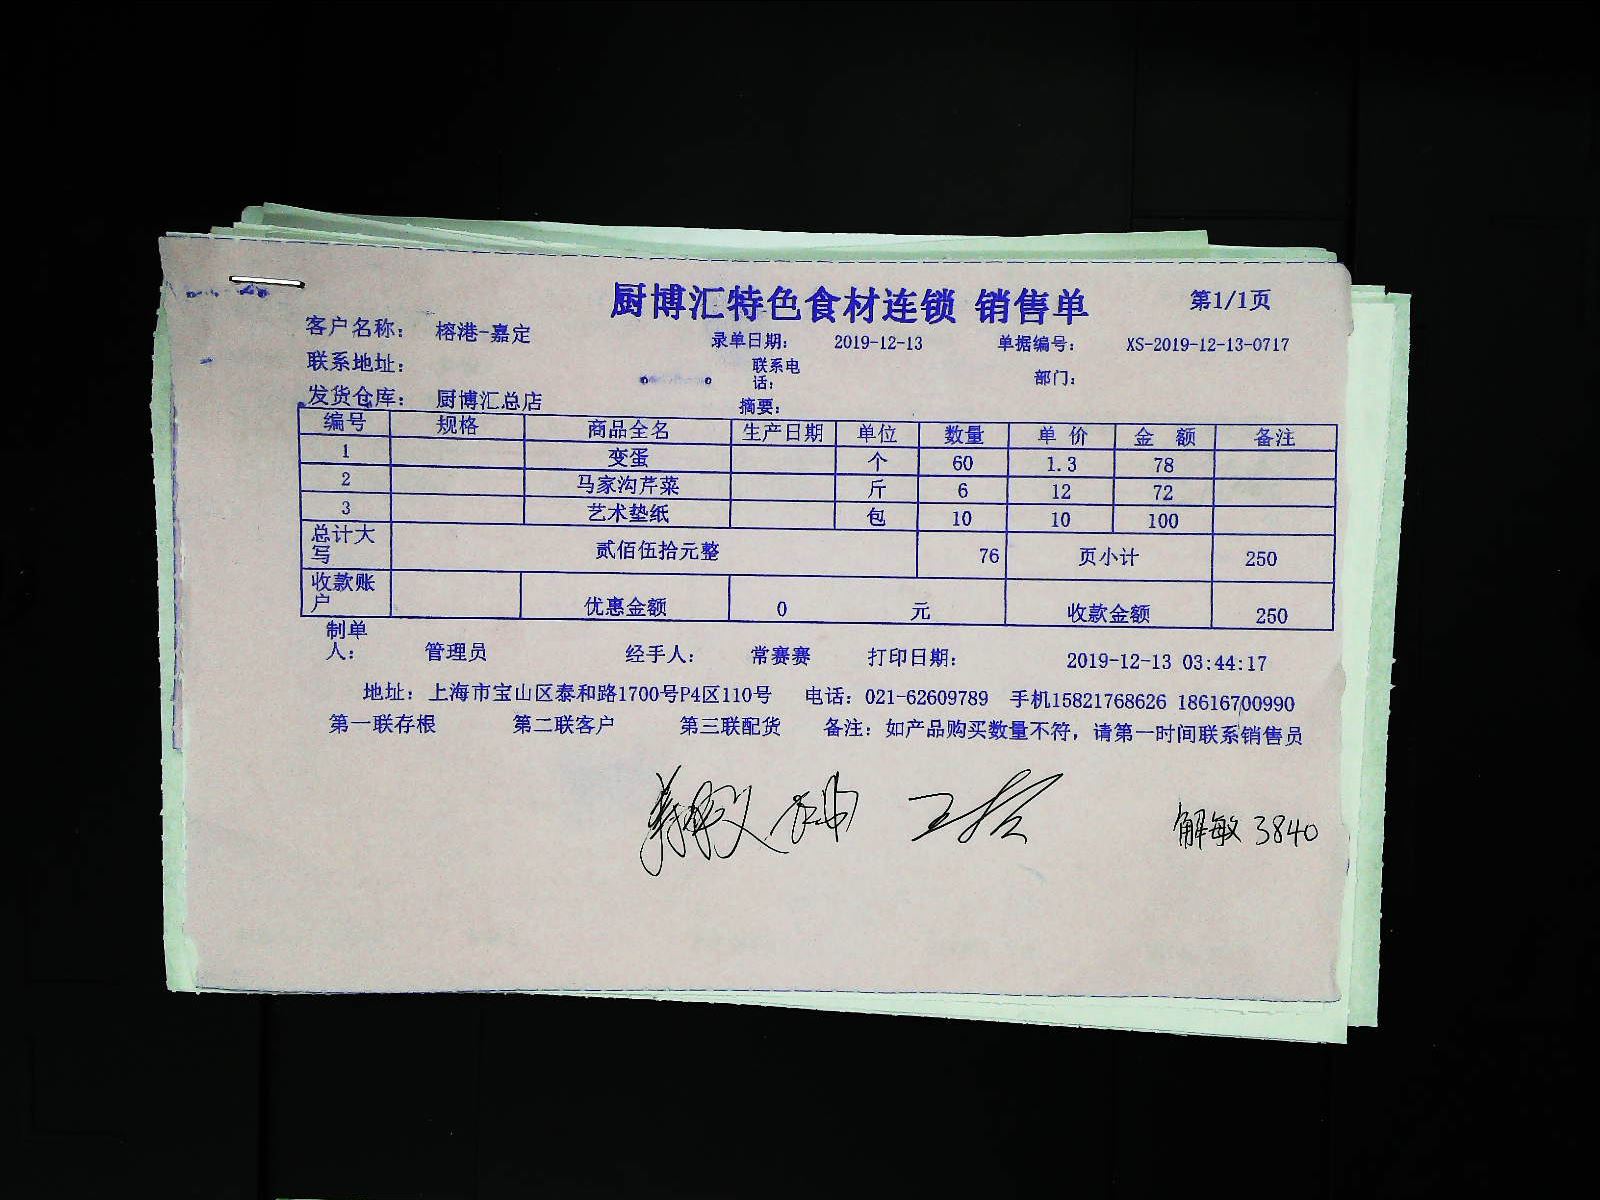 厨博汇特色食材连锁 销售单 第1/1页
客户名称: 榕港-嘉定 录单日期: 2019-12-13 单据编号: XS-2019-12-13-0717
联系地址: 联系电话: 部门:
发货仓库: 厨博汇总店 摘要:
编号 规格 商品全名 生产日期 单位 数量 单 价 金 额 备注
1 变蛋 个 60 1.3 78
2 马家沟芹菜 斤 6 12 72
3 艺术垫纸 包 10 10 100
总计大写 贰佰伍拾元整 76 页小计 250
收款账户 优惠金额 0 元 收款金额 250
制单人: 管理员 经手人: 常赛赛 打印日期: 2019-12-13 03:44:17
地址: 上海市宝山区泰和路1700号P4区110号 电话: 021-62609789 手机15821768626 18616700990
第一联存根 第二联客户 第三联配货 备注: 如产品购买数量不符, 请第一时间联系销售员
解敏 3840